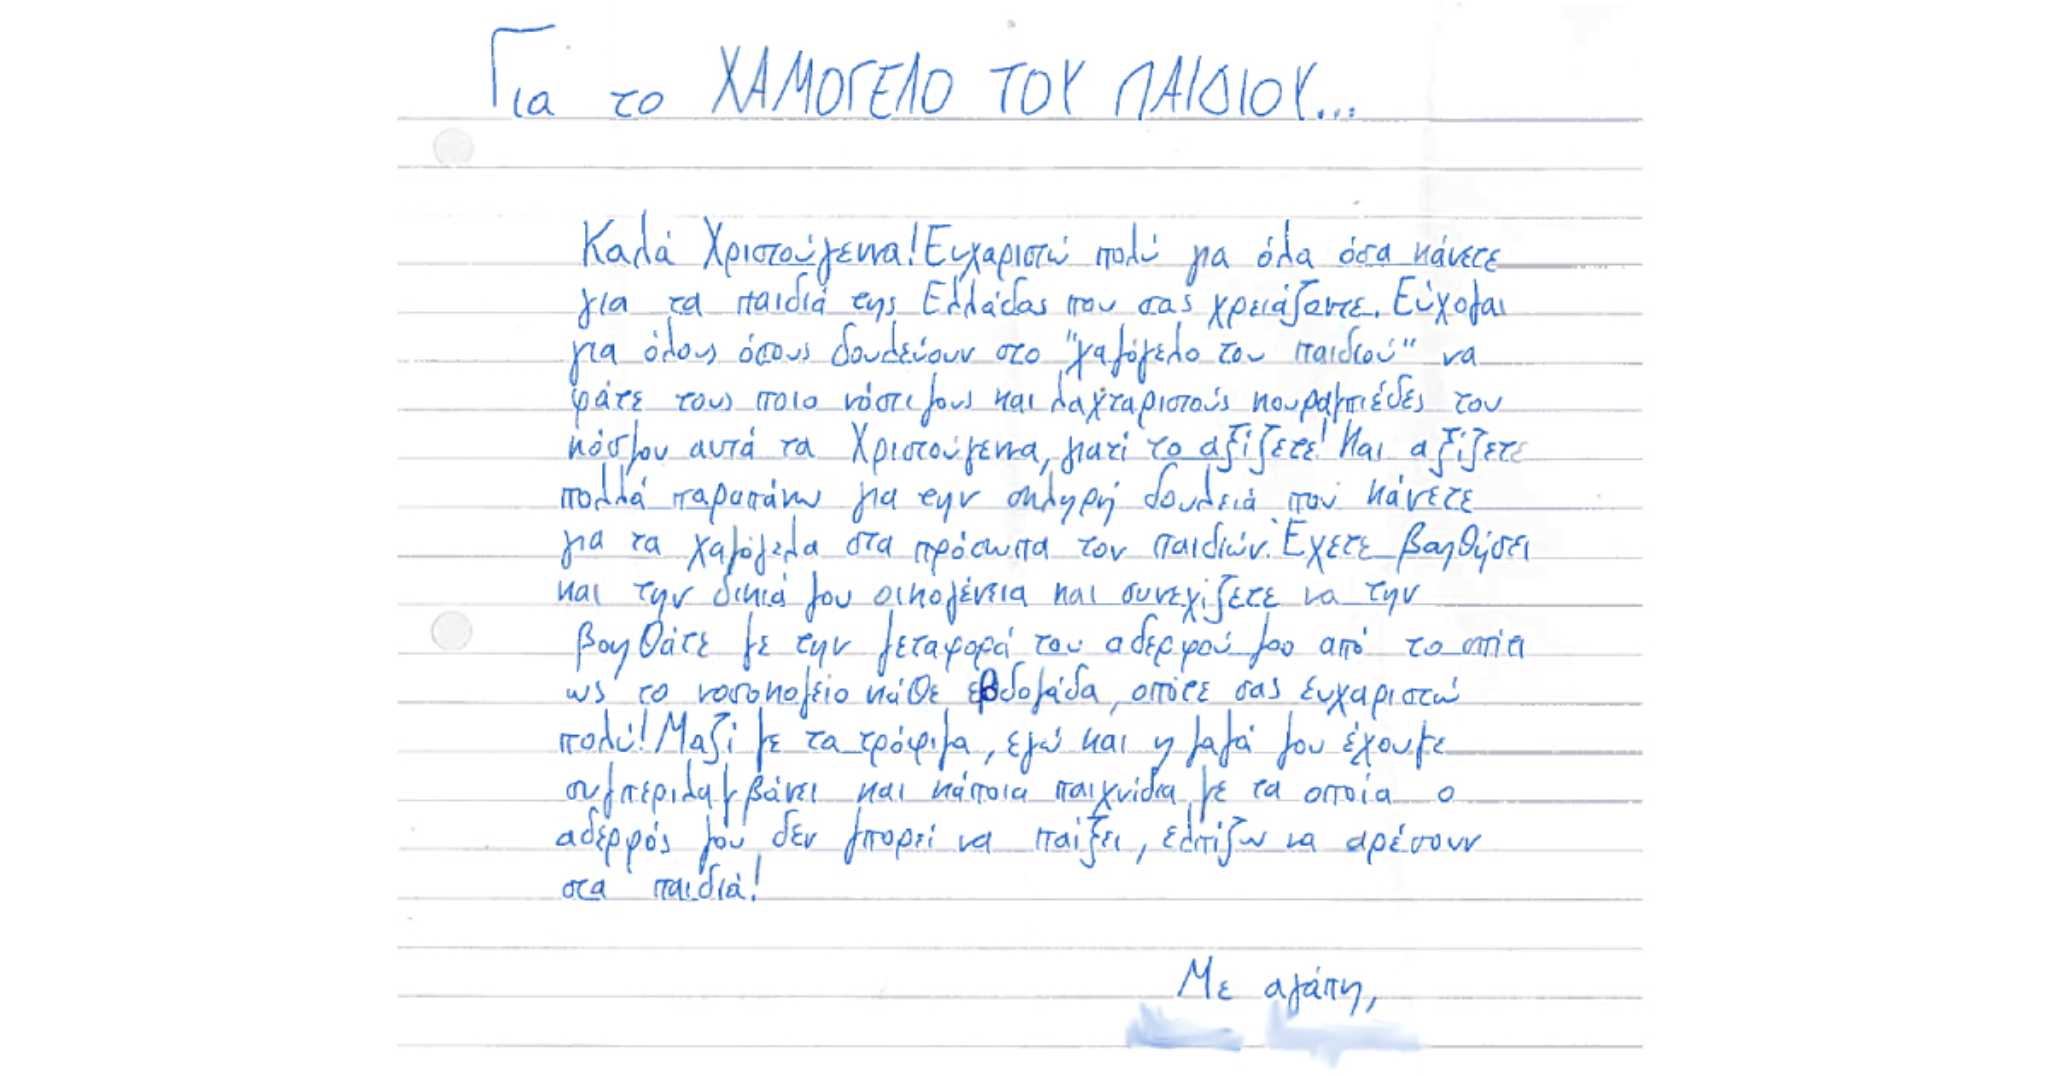 Για το ΧΑΜΟΓΕΛΟ ΤΟΥ ΠΑΙΔΙΟΥ...
Καλά Χριστούγεννα! Ευχαριστώ πολύ για όλα όσα κάνετε
για τα παιδιά της Ελλάδας που σας χρειάζοντε. Εύχομαι
για όλους όσους δουλεύουν στο "χαμόγελο του παιδιού" να
φάτε τους ποιο νόστιμους και λαχταριστούς κουραμπιέδες του
κόσμου αυτά τα Χριστούγεννα, γιατί το αξίζετε! Και αξίζετε
πολλά παραπάνω για την σκληρή δουλειά που κάνετε
για τα χαμόγελα στα πρόσωπα τον παιδιών. Έχετε βοηθήσει
και την δικιά μου οικογένεια και συνεχίζετε να την
βοηθάτε με την μεταφορά του αδερφού μου από το σπίτι
ως το νοσοκομείο κάθε εβδομάδα, οπότε σας ευχαριστώ
πολύ! Μαζί με τα τρόφιμα, εγώ και η μαμά μου έχουμε
συμπεριλαμβάνει και κάποια παιχνίδια με τα οποία ο
αδερφός μου δεν μπορεί να παίξει, ελπίζω να αρέσουν
στα παιδιά!
Με αγάπη,